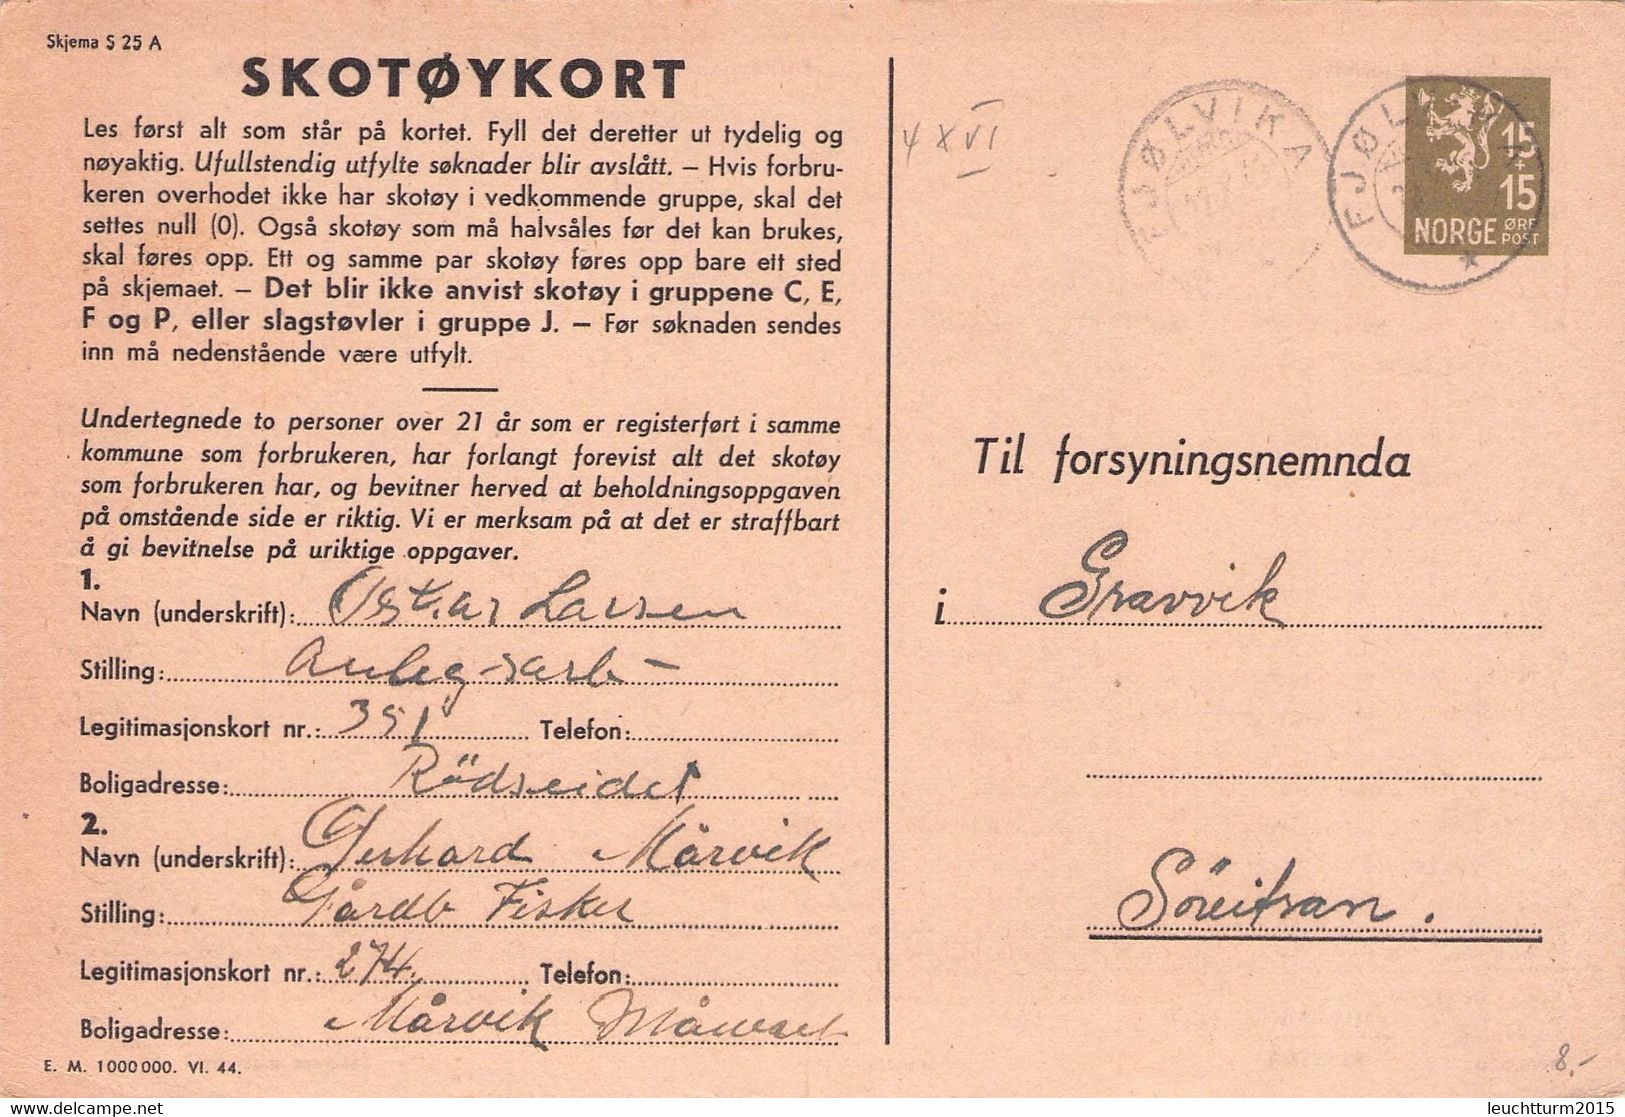 Skjema S 25 A
SKOTØYKORT
Les først alt som står på kortet. Fyll det deretter ut tydelig og
nøyaktig. Ufullstendig utfylte søknader blir avslått. – Hvis forbru-
keren overhodet ikke har skotøy i vedkommende gruppe, skal det
settes null (0). Også skotøy som må halvsåles før det kan brukes,
skal føres opp. Ett og samme par skotøy føres opp bare ett sted
på skjemaet. – Det blir ikke anvist skotøy i gruppene C, E,
F og P, eller slagstøvler i gruppe J. – Før søknaden sendes
inn må nedenstående være utfylt.
Undertegnede to personer over 21 år som er registerført i samme
kommune som forbrukeren, har forlangt forevist alt det skotøy
som forbrukeren har, og bevitner herved at beholdningsoppgaven
på omstående side er riktig. Vi er merksam på at det er straffbart
å gi bevitnelse på uriktige oppgaver.
1.
Navn (underskrift): Oskar Larsen
Stilling: Anlegsarb
Legitimasjonskort nr.: 351 Telefon:
Boligadresse: Rödseidet
2.
Navn (underskrift): Gerhard Mårvik
Stilling: Gårdb Fisker
Legitimasjonskort nr.: 274. Telefon:
Boligadresse: Mårvik
E. M. 1 000 000. VI. 44.
4 X VI
FJØLVIKA
15
+
15
NORGE ØRE
POST
Til forsyningsnemnda
i Gravvik
8.-
leuchtturm2015